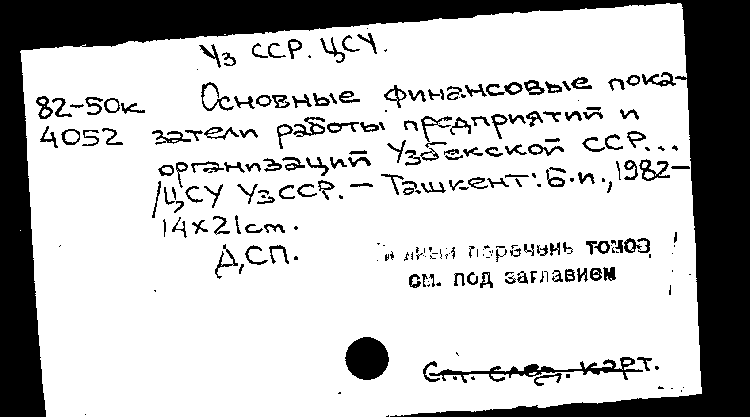 Уз ССР. ЦСУ.
82-50к Основные финансовые пока-
4052 затели работы предприятий и
организаций Узбекской ССР...
/ЦСУ УзССР. - Ташкент: Б.и., 1982-
14x21cm.
ДСП.
перечень томов
см. под заглавием
См. след. карт.